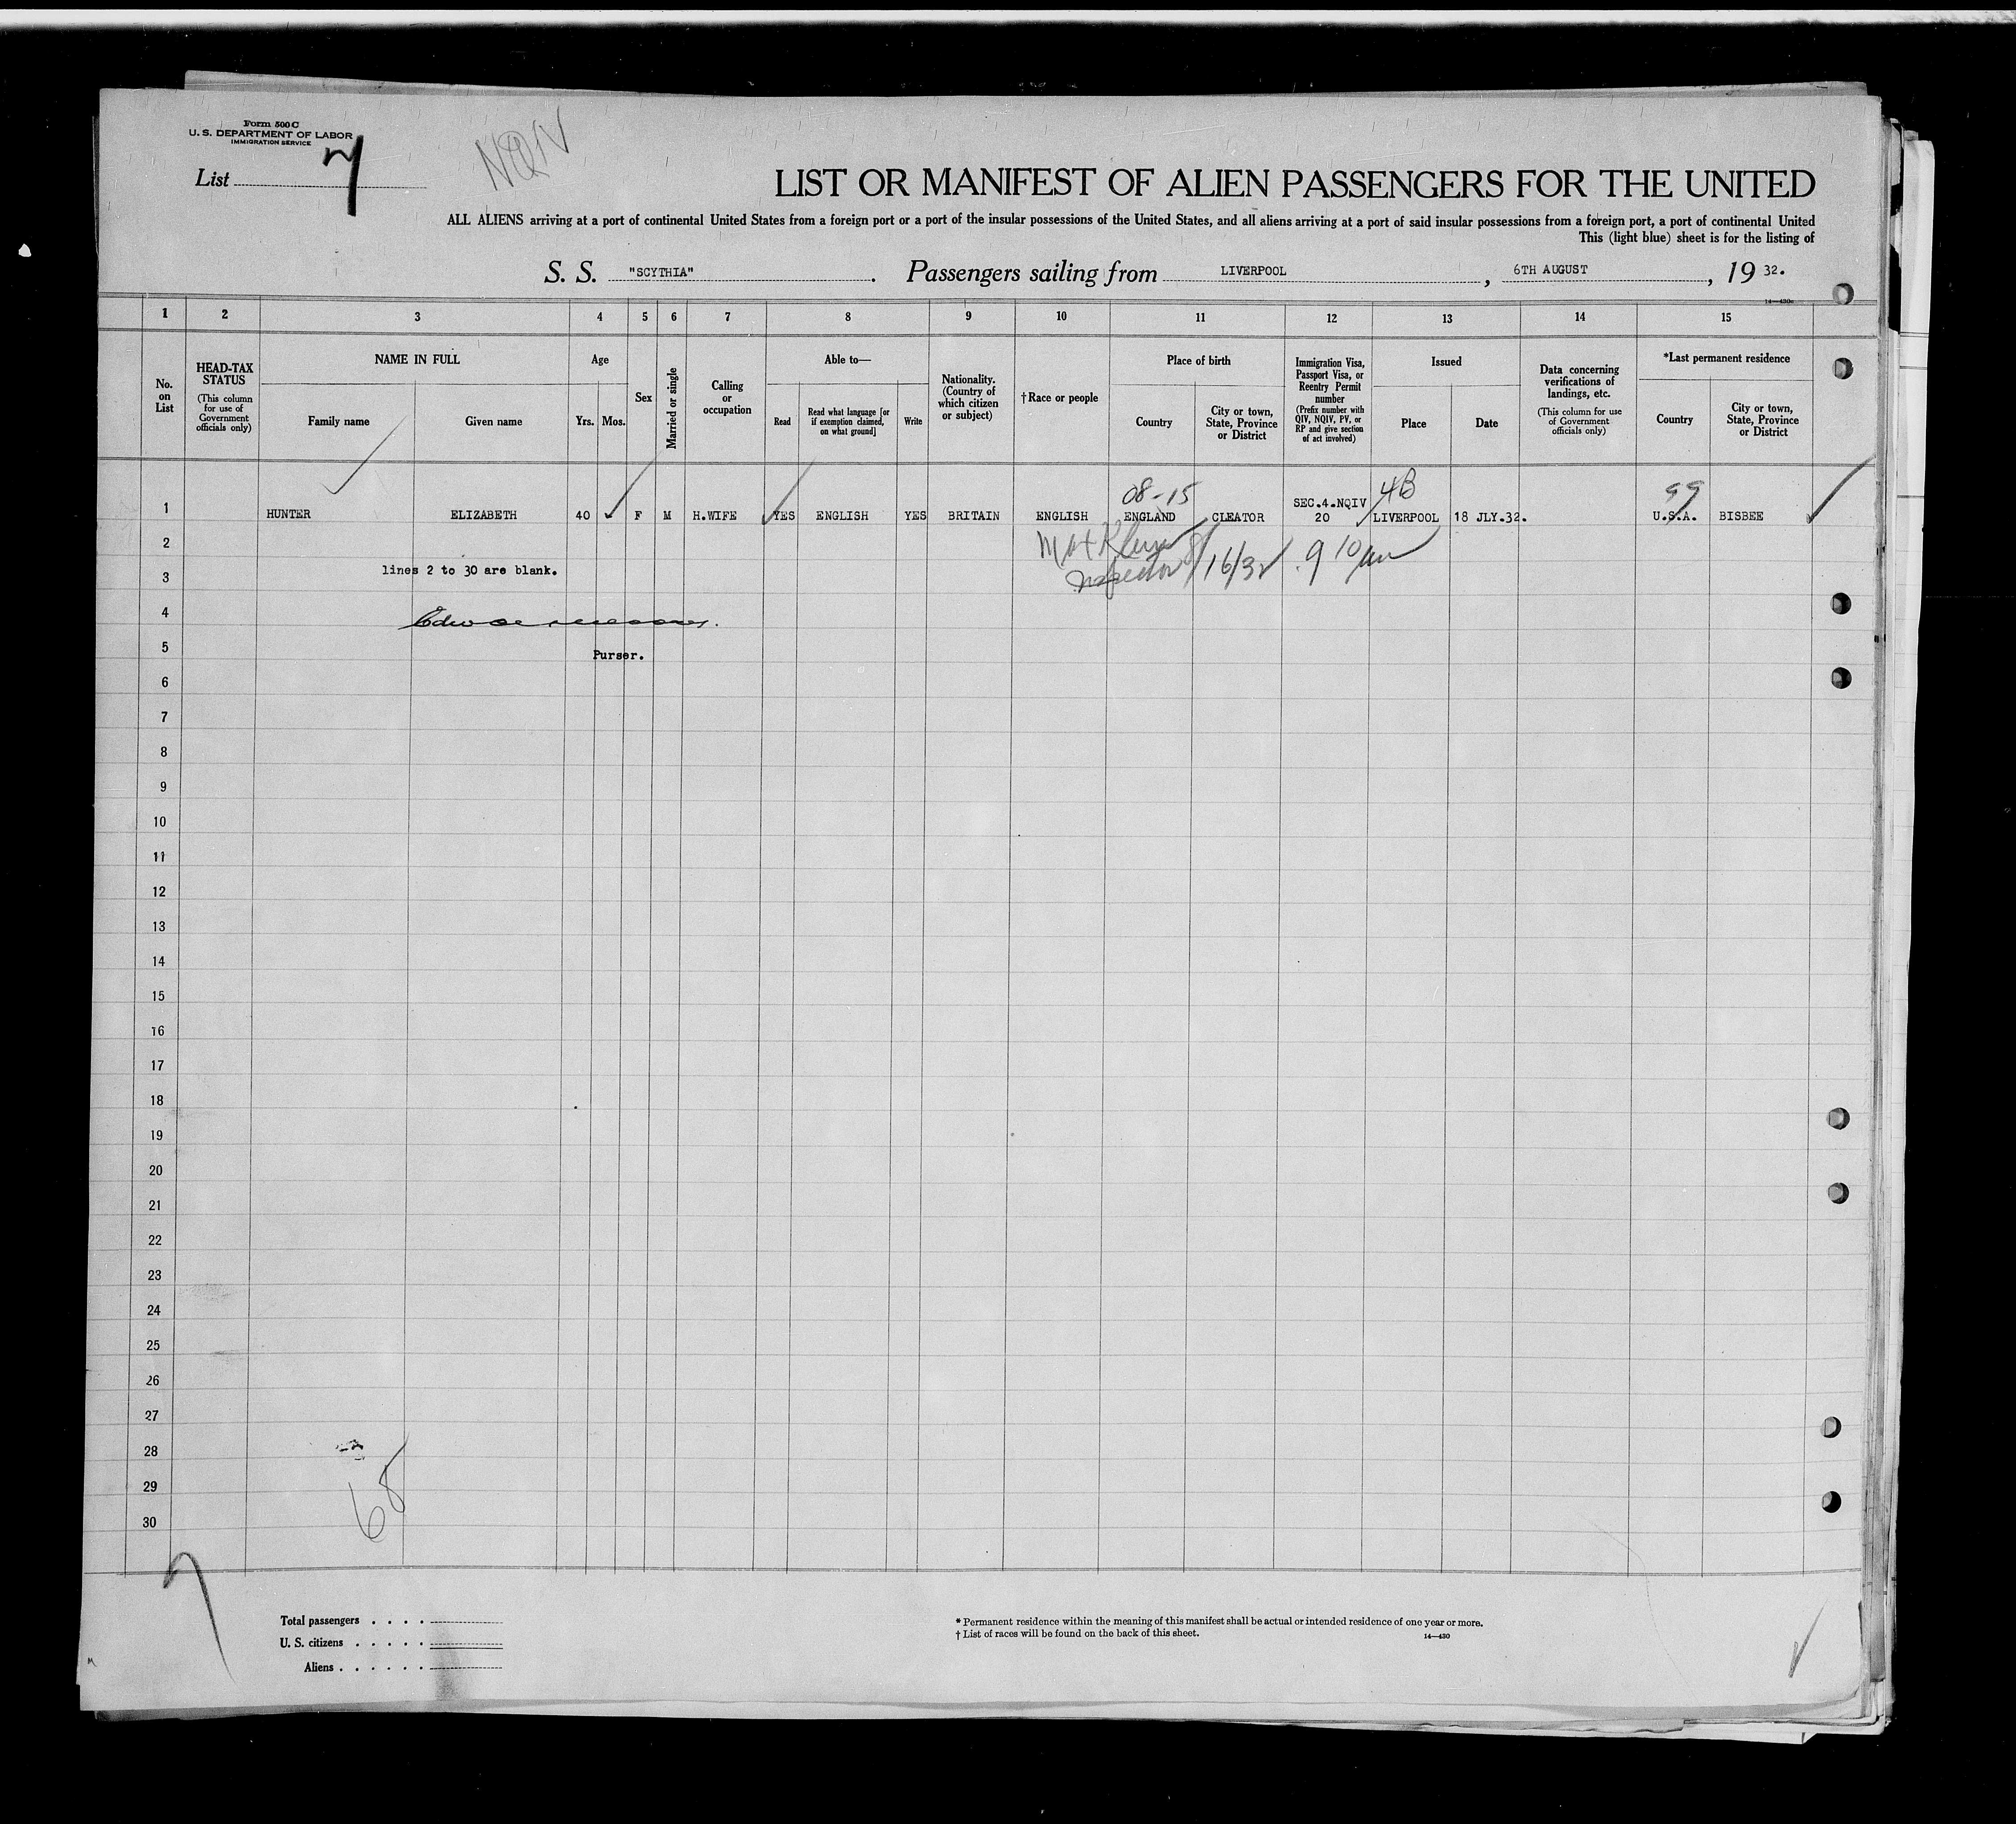 Form 500 C
U. S. DEPARTMENT OF LABOR
IMMIGRATION SERVICE
List 7
NQIV
LIST OR MANIFEST OF ALIEN PASSENGERS FOR THE UNITED
ALL ALIENS arriving at a port of continental United States from a foreign port or a port of the insular possessions of the United States, and all aliens arriving at a port of said insular possessions from a foreign port, a port of continental United
This (light blue) sheet is for the listing of
S. S. "SCYTHIA". Passengers sailing from LIVERPOOL, 6TH AUGUST, 19 32.
14—430c
1 2 3 4 5 6 7 8 9 10 11 12 13 14 15
No. on List
HEAD-TAX STATUS (This column for use of Government officials only)
NAME IN FULL
Family name
Given name
Age
Yrs.
Mos.
Sex
Married or single
Calling or occupation
Able to—
Read
Read what language [or if exemption claimed, on what ground]
Write
Nationality. (Country of which citizen or subject)
† Race or people
Place of birth
Country
City or town, State, Province or District
Immigration Visa, Passport Visa, or Reentry Permit number (Prefix number with QIV, NQIV, PV, or RP and give section of act involved)
Issued
Place
Date
Data concerning verifications of landings, etc. (This column for use of Government officials only)
*Last permanent residence
Country
City or town, State, Province or District
08-15 4B 99
SEC.4.NQIV
1 HUNTER ELIZABETH 40 - F M H.WIFE YES ENGLISH YES BRITAIN ENGLISH ENGLAND CLEATOR 20 LIVERPOOL 18 JLY.32. U.S.A. BISBEE
2
Inspector 8/16/32 9 10 am
3 lines 2 to 30 are blank.
4
5 Purser.
6
7
8
9
10
11
12
13
14
15
16
17
18
19
20
21
22
23
24
25
26
27
28
29
30
68
7
Total passengers . . . .
U. S. citizens . . . . .
Aliens . . . . . .
* Permanent residence within the meaning of this manifest shall be actual or intended residence of one year or more.
† List of races will be found on the back of this sheet.
14—430